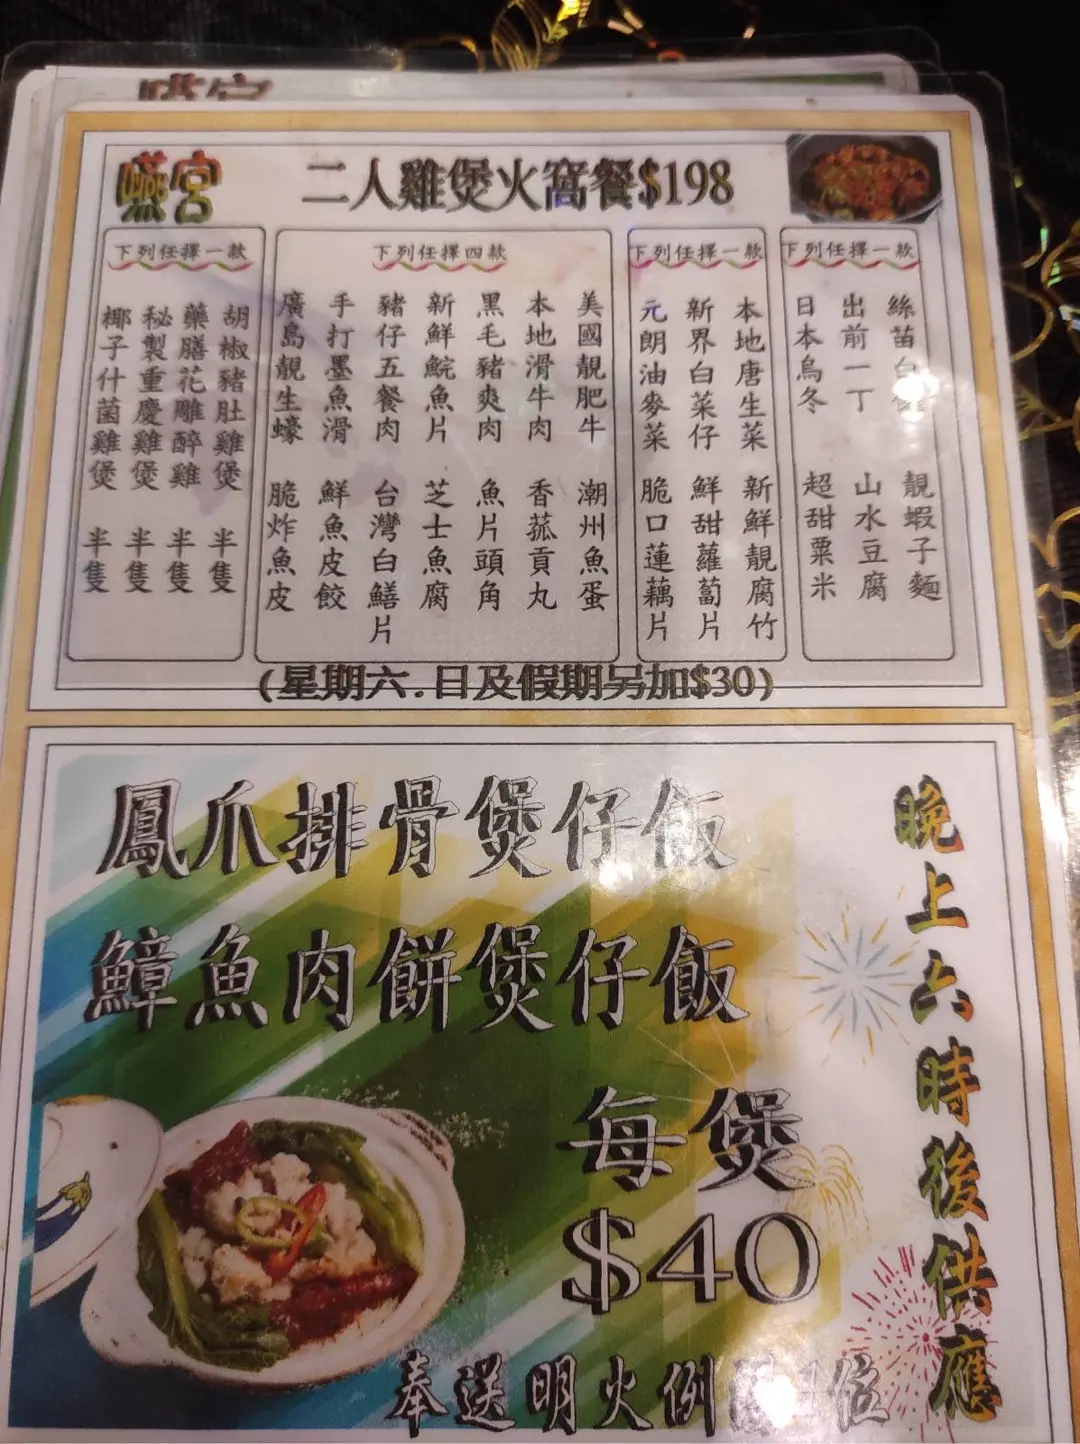 嚥宮
二人雞煲火窩餐$198
下列任擇一款
胡椒豬肚雞煲 半隻
藥膳花雕醉雞 半隻
秘製重慶雞煲 半隻
椰子什菌雞煲 半隻
下列任擇四款
美國靚肥牛
本地滑牛肉
黑毛豬爽肉
新鮮鯇魚片
豬仔五餐肉
手打墨魚滑
廣島靚生蠔
潮州魚蛋
香菰貢丸
魚片頭角
芝士魚腐
台灣白鱔片
鮮魚皮餃
脆炸魚皮
下列任擇一款
本地唐生菜
新界白菜仔
元朗油麥菜
新鮮靚腐竹
鮮甜蘿蔔片
脆口蓮藕片
下列任擇一款
絲苗白
出前一丁
日本烏冬
靚蝦子麵
山水豆腐
超甜粟米
(星期六.日及假期另加$30)
鳳爪排骨煲仔飯
鱆魚肉餅煲仔飯
每煲
$40
奉送明火例 位
晚上六時後供應